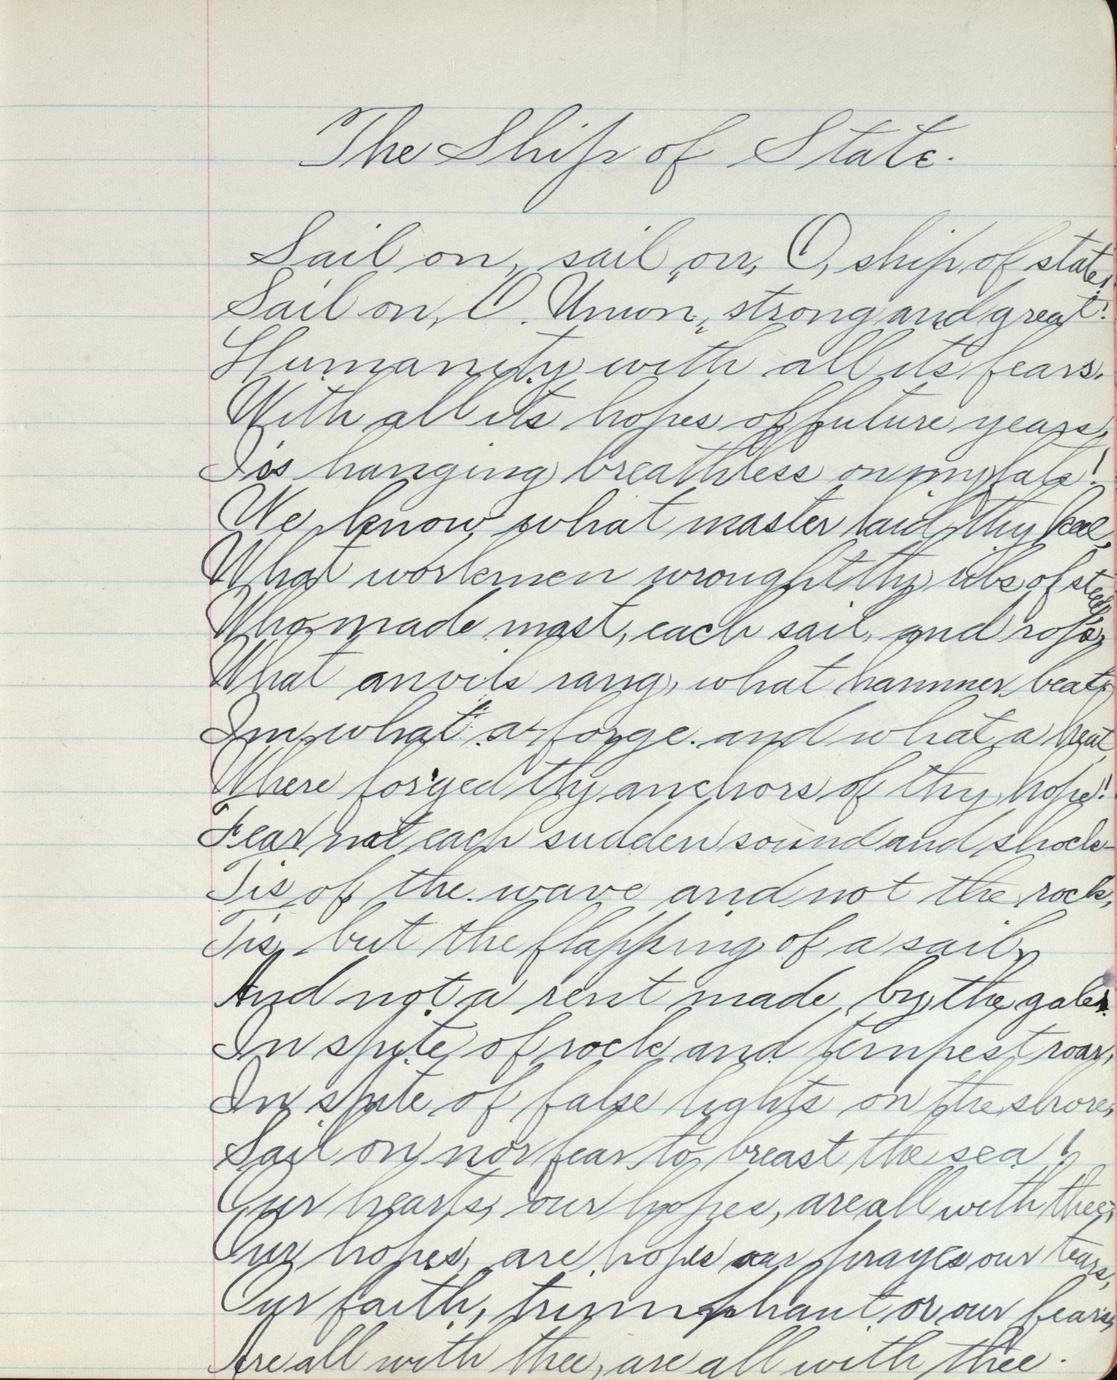 The Ship of State.
Sail on, sail on, O, ship of state!
Sail on, O. Union, strong and great!
Humanity with all its fears.
With all its hopes of future years,
Is hanging breathless on my fate!
We know what master laid thy keel,
What workmen wrought thy ribs of steel,
Who made mast, each sail, and rope,
What anvils rang, what hammer beat,
In what a forge. and what a heat
Where forged thy anchors of thy hope!
Fear not each sudden sound and shock
Tis of the wave and not the rock,
Tis, but the flapping of a sail,
And not a rent made by the gale.
In spite of rock and tempest roar,
In spite of false lights on the shore,
Sail on nor fear to breast the sea!
Our hearts, our hopes, are all with thee,
Our hopes, are hopes our prayes our tears,
Our faith, triumphant or our fears,
Are all with thee, are all with thee.